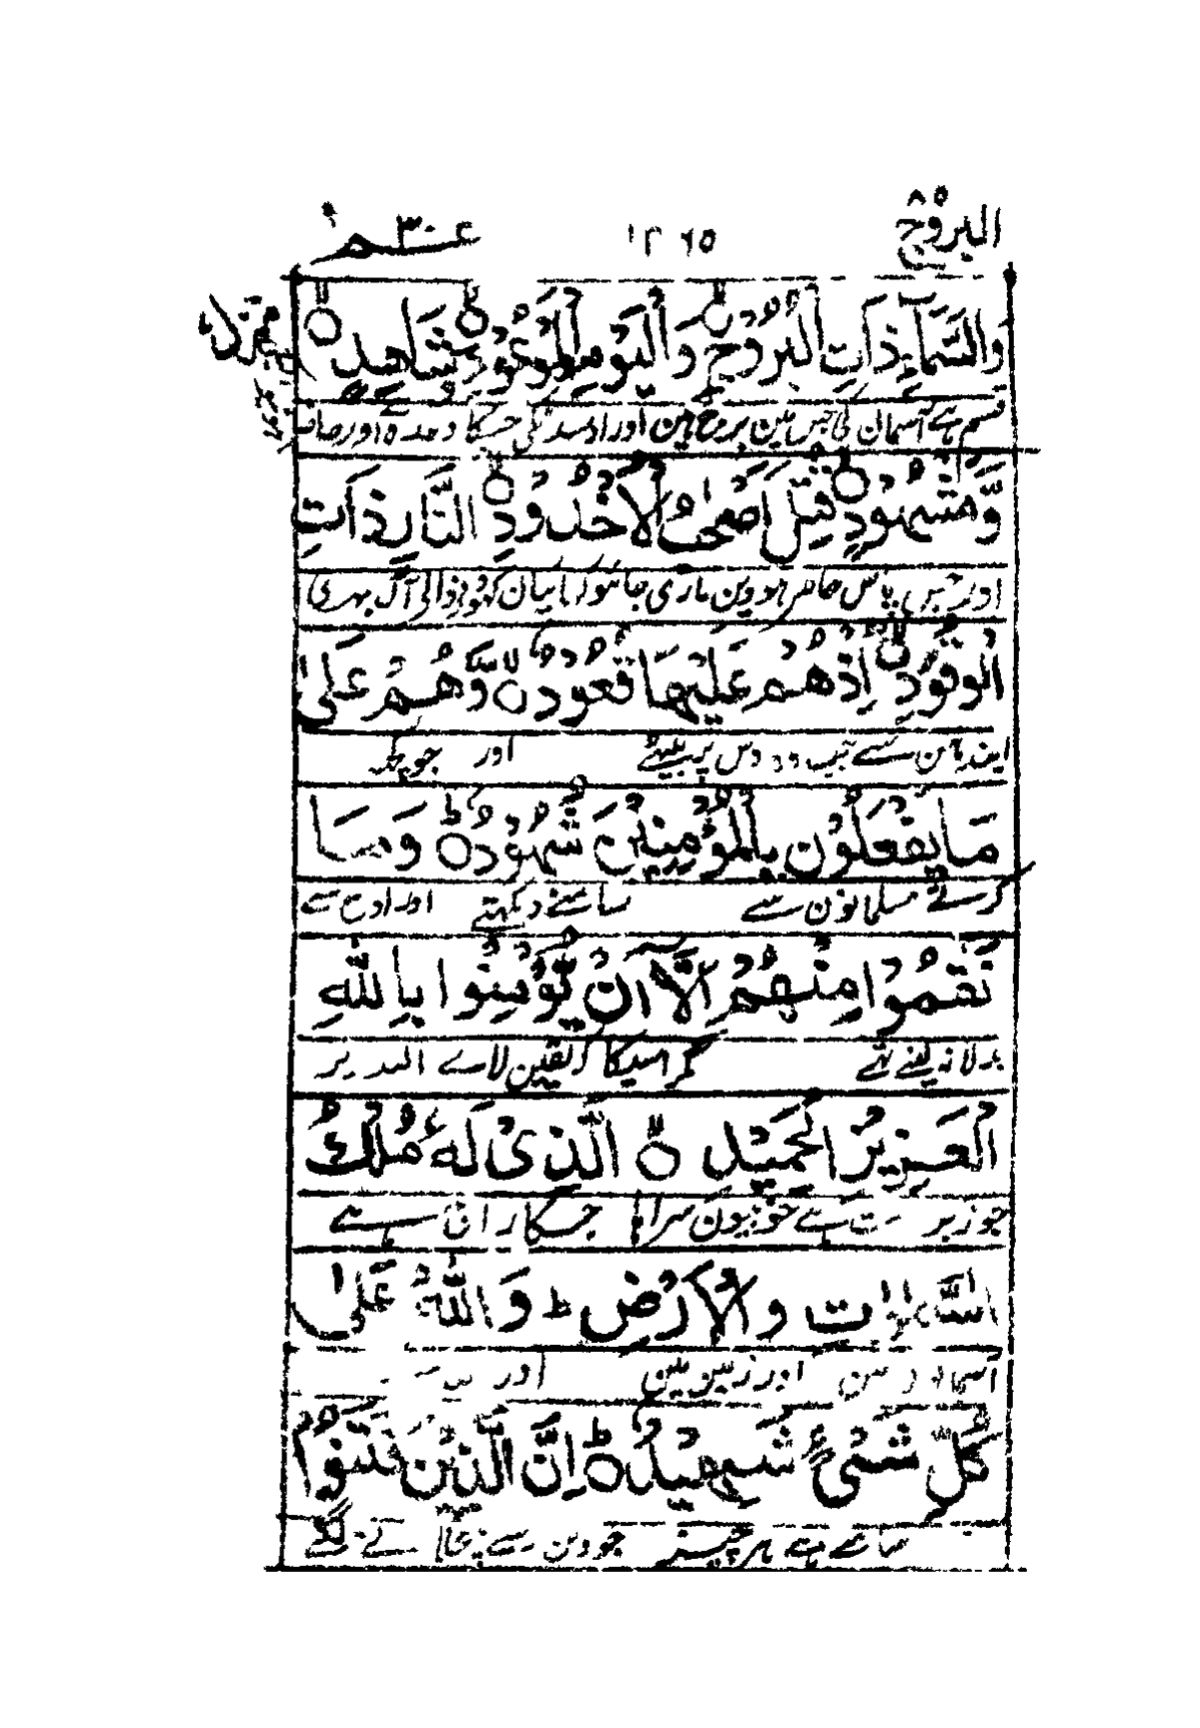 البروج ٨٥
١٢٦٥
عم ٣٠
وَالسَّمَآءِ ذَاتِ الْبُرُوْجِ ۝ وَالْيَوْمِ الْمَوْعُوْدِ ۝ شَاهِدٍ ۝
قسم ہے آسمان کی جس مین برج ہین اور اوسدنکی جسکا وعدہ ہے اور حاضر
وَّمَشْهُوْدٍ ۝ قُتِلَ اَصْحٰبُ الْاُخْدُوْدِ ۝ النَّارِ ذَاتِ
اور جس پاس حاضر ہووین ماری جائیو کھائیان کھودنیوالی آگ بھری
الْوَقُوْدِ ۝ اِذْهُمْ عَلَيْهَا قُعُوْدٌ ۝ وَّهُمْ عَلٰى
ایندہن سے جب وس پر بیٹھے اور جو کچہ
مَا يَفْعَلُوْنَ بِالْمُؤْمِنِيْنَ شُهُوْدٌ ۝ ط وَمَا
کرتے مسلمانون سے سامنے دیکہتے اور اون سے
نَقَمُوْا مِنْهُمْ اِلَّآ اَنْ يُّؤْمِنُوْا بِاللّٰهِ
بدلا نہ لیتے تھے مگر اسیکا کہ یقین لائے اللہ پر
الْعَزِيْزِ الْحَمِيْدِ ۝ الَّذِيْ لَهٗ مُلْكُ
جو زبردست ہے خوبیون سراہا جسکا راج ہے
السَّمٰوٰتِ وَالْاَرْضِ ط وَاللّٰهُ عَلٰى
آسمانون مین اور زمین مین اور
كُلِّ شَيْءٍ شَهِيْدٌ ۝ ط اِنَّ الَّذِيْنَ فَتَنُوا
سامنے ہے ہر چیز جو دین سے بچلانے لگے